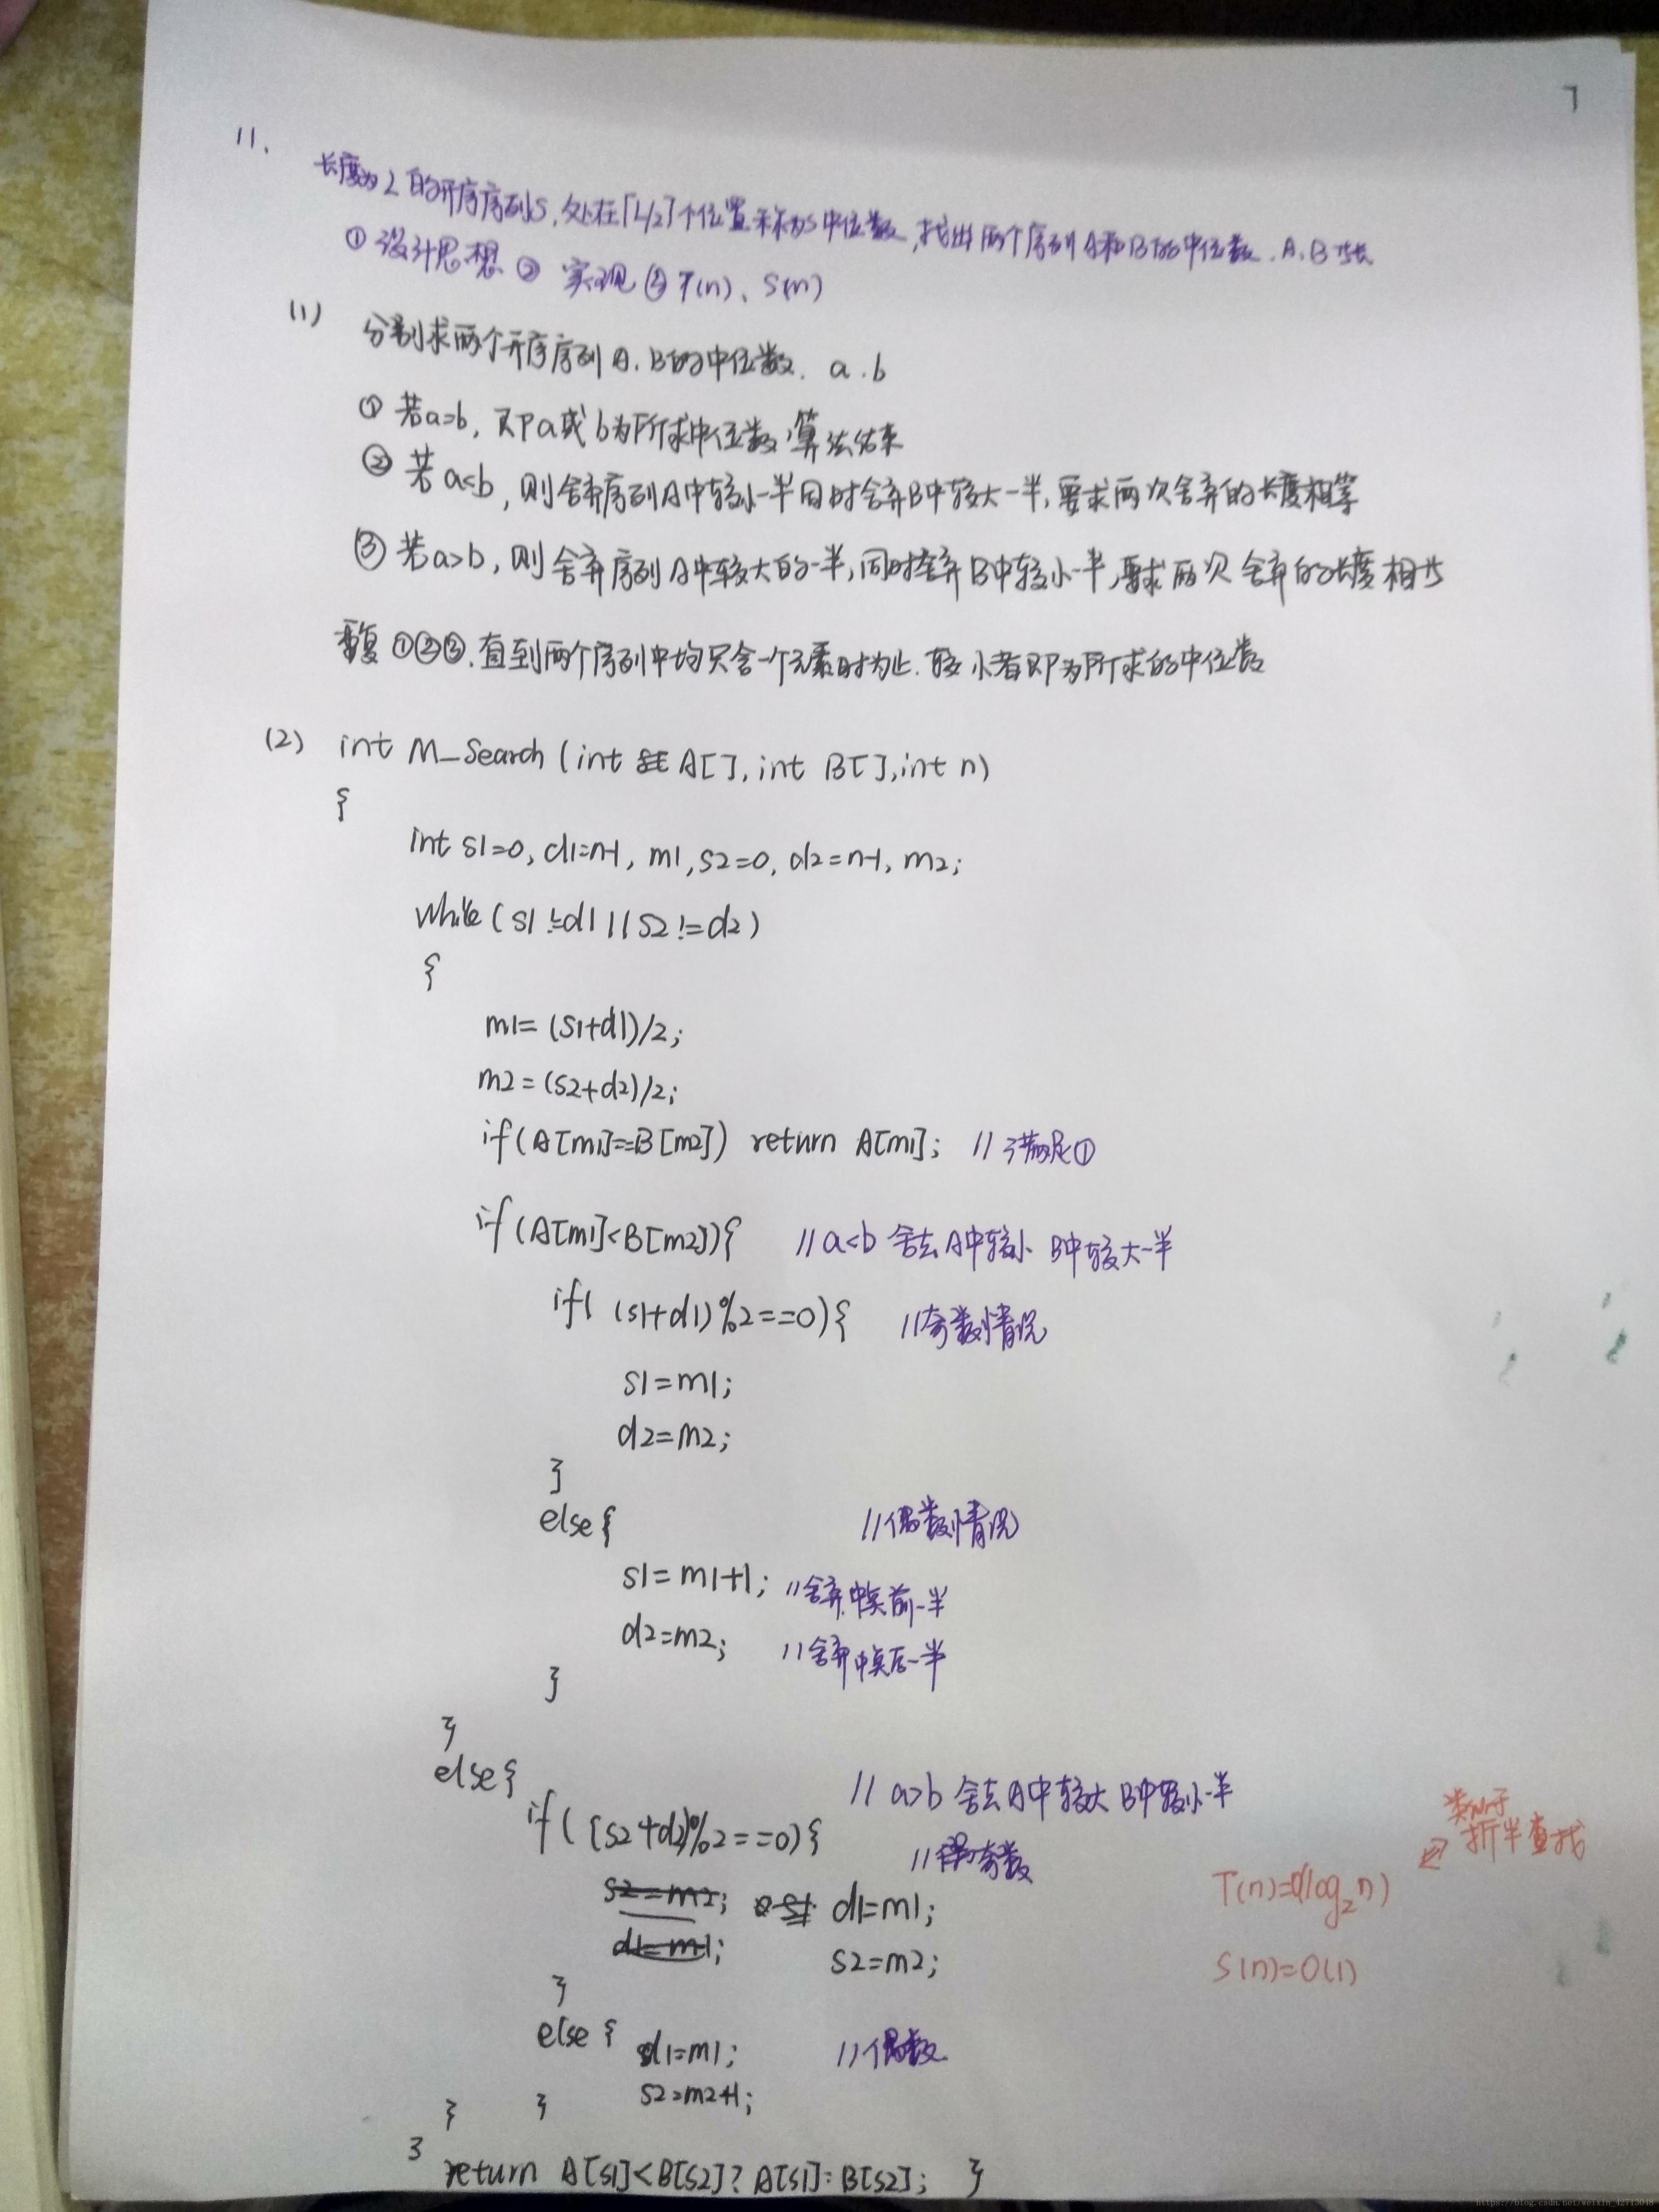 7
11.
长度为L的升序序列S,处在⌈L/2⌉个位置称为S中位数,找出两个序列A和B的中位数.A,B等长
① 设计思想 ② 实现 ③ T(n)、S(n)
(1) 分别求两个升序序列A.B的中位数. a.b
① 若a=b, 则a或b为所求中位数,算法结束
② 若a<b,则舍弃序列A中较小一半同时舍弃B中较大一半,要求两次舍弃的长度相等
③ 若a>b,则舍弃序列A中较大的一半,同时舍弃B中较小一半,要求两次舍弃的长度相等
重复①②③.直到两个序列中均只含一个元素时为止.较小者即为所求的中位数
(2) int M_Search (int A[],int B[],int n)
{
int s1=0, d1=n-1, m1, s2=0, d2=n-1, m2;
while (s1!=d1||s2!=d2)
{
m1=(s1+d1)/2;
m2=(s2+d2)/2;
if(A[m1]==B[m2]) return A[m1]; //满足①
if(A[m1]<B[m2]){ //a<b 舍去A中较小 B中较大一半
if( (s1+d1)%2==0){ //奇数情况
s1=m1;
d2=m2;
}
else{ //偶数情况
s1=m1+1; //舍弃中点前一半
d2=m2; //舍弃中点后一半
}
}
else{ // a>b 舍去A中较大 B中较小一半
if( (s2+d2)%2==0){ //奇数
s2=m2; d1=m1;
d1=m1; s2=m2;
}
else{ d1=m1; //偶数
s2=m2+1;
} }
} return A[s1]<B[s2]? A[s1]:B[s2]; }
类似于
折半查找
T(n)=O(log₂n)
S(n)=O(1)
https://blog.csdn.net/weixin_42713048